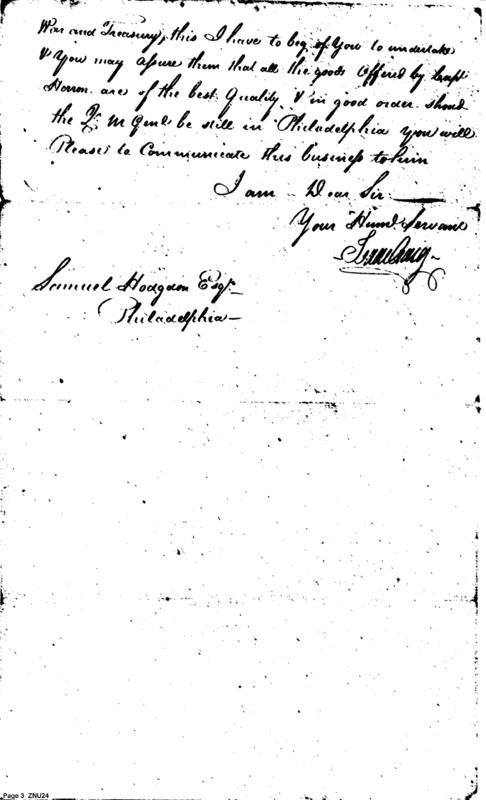 War and Treasury, this I have to beg of You to undertake
& You may assure them that all the goods Offered by Capt
Harm. are of the best Quality & in good order. should
the Q. M Genl be still in Philadelphia you will
Please to Communicate this business to him
I am Dear Sir
Your Humb Servant
Isaac Craig
Samuel Hodgdon Esqr.
Philadelphia
Page 3 ZNU24